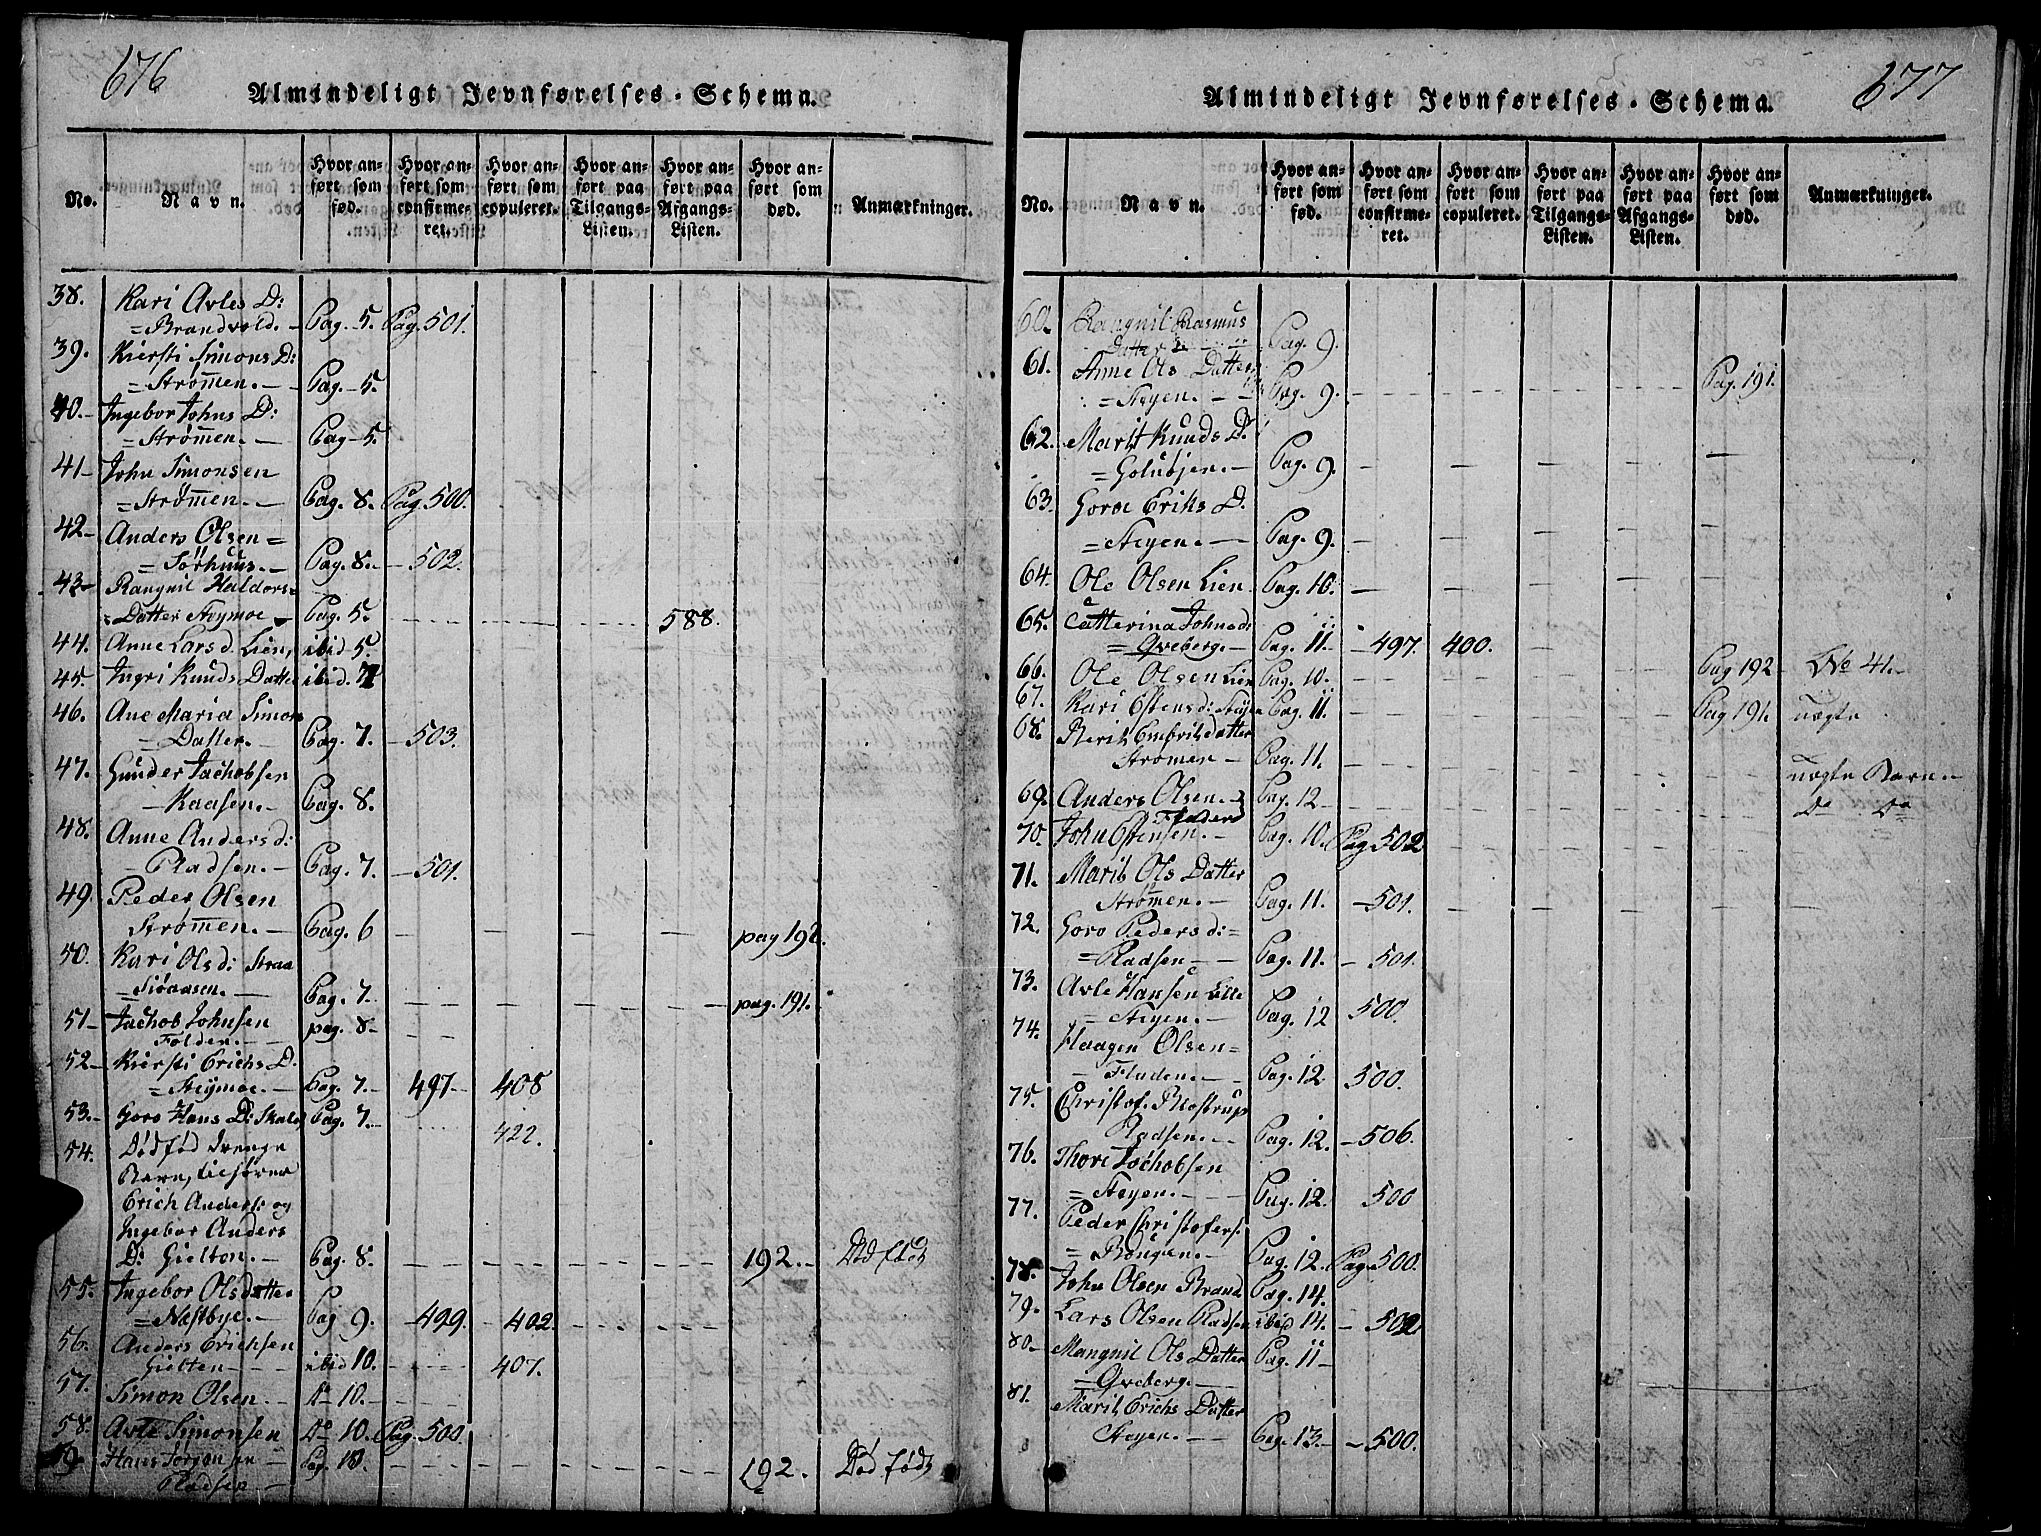 676
Almindeligt Jevnførelses-Schema.
No. Navn. Hvor anført som fød. Hvor anført som confirmeret. Hvor anført som copuleret. Hvor anført paa Tilgangs-Listen. Hvor anført paa Afgangs-Listen. Hvor anført som død. Anmærkninger.
38. Kari Avles D:
=Brandvold.- Pag. 5. Pag. 501.
39. Kiersti Simons D:
=Strømen.- Pag.-5.
40.- Ingebor Johns D:
=Strømen.- Pag-5.
41- John Simonsen
=Strømen.- Pag. 8. Pag. 500.
42- Anders Olsen=
=Sørhuus.- Pag. 8.- -502.
43- Rangnil Haldors=
=Datter Steymoe Pag. 5. 588.
44. Anne Lars d. Lien, ibid 5.
45. Ingri Knuds Datter ibid. 7
46. Ane Maria Simons
-Datter.- Pag. 7. -503.
47. Gunder Jachobsen
-Kaasen.- Pag. 8.
48. Anne Anders d:
-Pladsen.- Pag. 7. -501.
49. Peder Olsen
Strømen.- Pag. 6 pag 192.
50. Kari Ols d: Straa
-Siøaasen.- Pag. 7. pag. 191.
51- Jachob Johnsen pag. 8-
Folden.-
52- Kiersti Erichs D.
=Steymoe.- Pag. 7.- 497- 408
53.- Goro Hans D: Pag. 7.- 422.
54. Dødfød Drenge
Barn,
Erich Anders: og
Ingebor Anders
D: Gielton.- Pag. 8. 192.- Død født
55. Ingebor Olsdatter
=Nestbye.- Pag 9. -499. -402.
56. Anders Erichsen
Gielten- ibid 10. 407.
57. Simon Olsen.- Do 10.
58. Avle Simonsen Do 10. Pag. 500.
59. Hans Jørgensen Pag. 10. 192. Død født
Pladsen-
677
Almindeligt Jevnførelses-Schema.
No. Navn. Hvor anført som fød. Hvor anført som confirmeret. Hvor anført som copuleret. Hvor anført paa Tilgangs-Listen. Hvor anført paa Afgangs-Listen. Hvor anført som død. Anmærkninger.
60. Rangnil Rasmus
Datter Pag. 9.
61. Anne Ols Datter
=Steyen.- Pag. 9. Pag. 191.
62. Marit Knuds D.
=Golubjen.- Pag. 9.
63. Goroe Eriks D.
=Steyen.- Pag. 9.
64. Ole Olsen Lien Pag. 10.
65. Catterina Johns d:
=Qveberg.- Pag. 11. -497. 400.
66. Ole Olsen Lien Pag. 10. Pag 192- No 41.-
67. Kari Estens d: Steyen Pag. 11. Pag 191. uægte
68. Berit Embrikdatter
Strømen- Pag. 11. uægte Barn.-
69. Anders Olsen.- Pag. 12- Do Do
Fladen
70. John Estensen.- Pag. 10. Pag 502
71. Marit Ols Datter
Strømen.- Pag. 11. -501.
72. Goro Peders d:=
=Pladsen- Pag. 11. -501.
73. Avle Hansen Lille
=Steyen.- Pag. 12 500.
74. Haagen Olsen=
-Fladen.- Pag. 12. 500.
75. Christof. Blostrup
Pladsen.- Pag. 12. -506.
76. Thore Jachobsen
=Steyen.- Pag. 12. 500
77. Peder Christofers.
=Bøngen.- Pag. 12. Pag. 500.
78. John Olsen Brand Pag. 14.
79. Lars Olsen Pladsen ibid 14. -502
80.- Mangnil Ols Datter Pag. 11-
=Qveberg.-
81. Marit Erichs Datter
Steyen.- Pag. 13- -500.